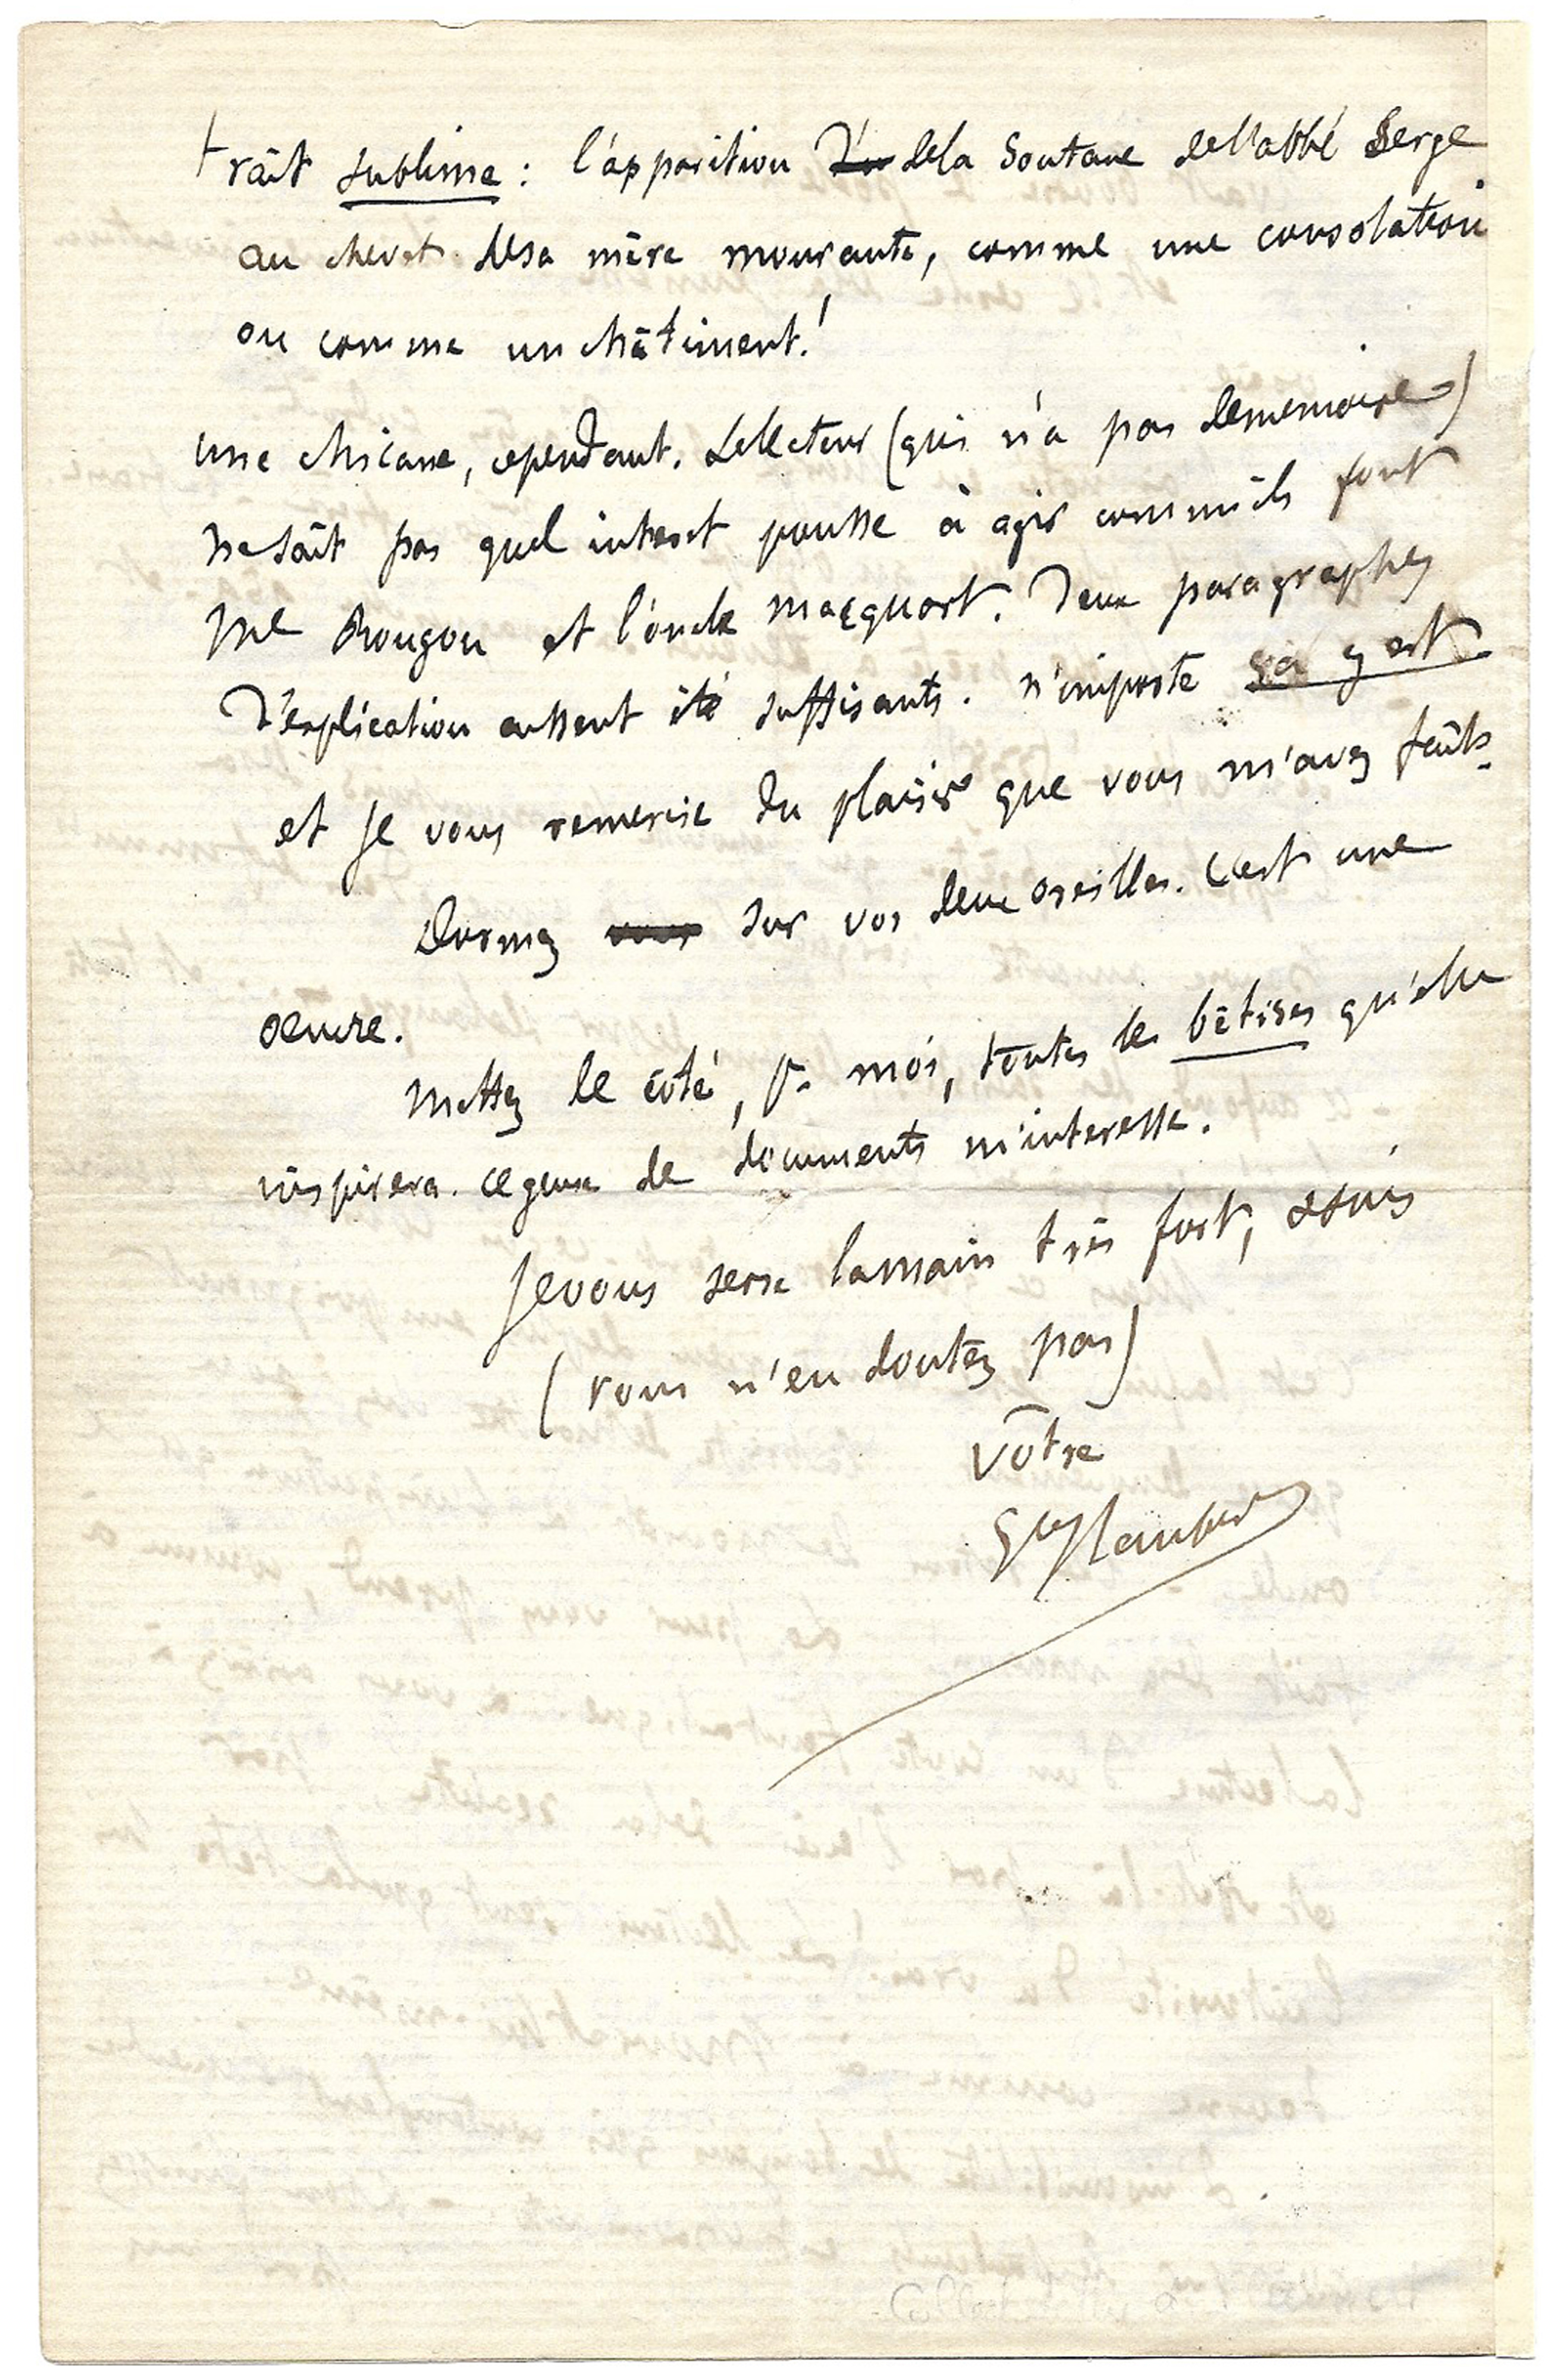 trait sublime : l'apparition de la Soutane de l'abbé Serge
au chevet de sa mère mourante, comme une consolation
ou comme un châtiment !
une chicane, cependant. Le lecteur (qui n'a pas de memoire)
ne sait pas quel interet pousse à agir comme ils font
Me Rougon et l'oncle Macquart. Deux paragraphes
d'explication eussent été suffisants. n'importe ça y est
et je vous remercie du plaisir que vous m'avez faits.
Dormez sur vos deux oreilles. C'est une
oeuvre.
Mettez de côté, pr moi, toutes les bêtises qu'elle
inspirera. ce genre de documents m'interesse.
Je vous serre la main très fort, & suis
(vous n'en doutez pas)
vôtre
Gve Flaubert